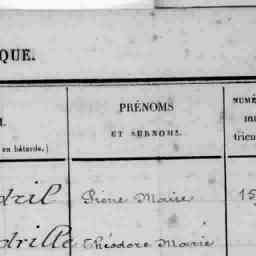 QUE.
PRÉNOMS
NUMÉ
M.
ET SURNOMS.
mat
tricu
en bâtarde.)
dril Pierre Marie 15
drille Théodore Marie